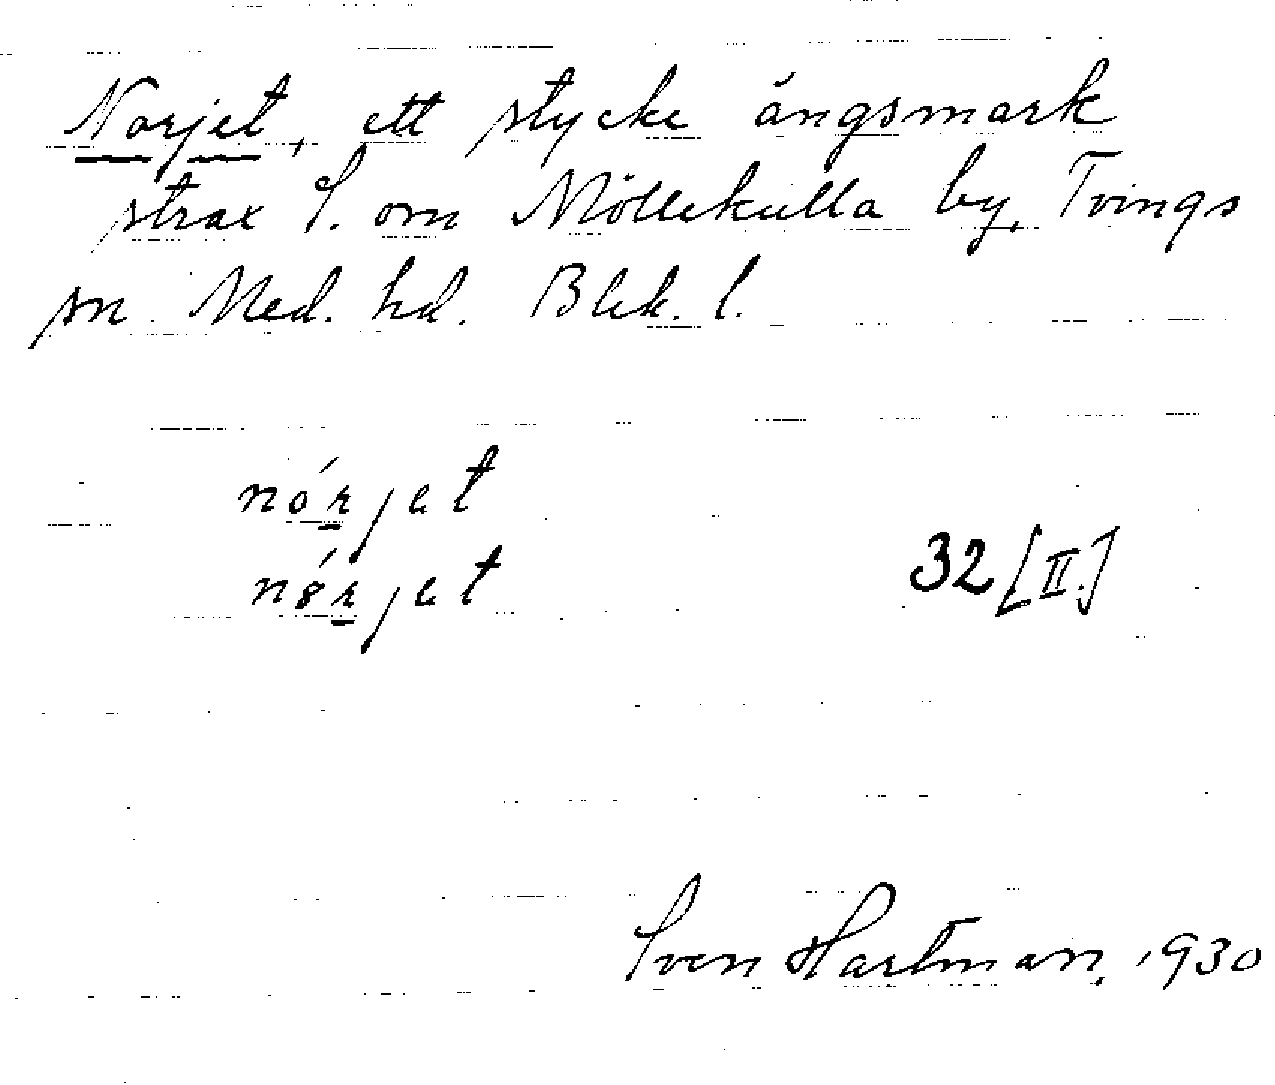 Norjet, ett stycke ängsmark
strax S. om Möllekulla by, Tvings
sn Med. hd. Blek. l.
nórjet
nǿrjet
32 [II.]
Sven Hartman, 1930